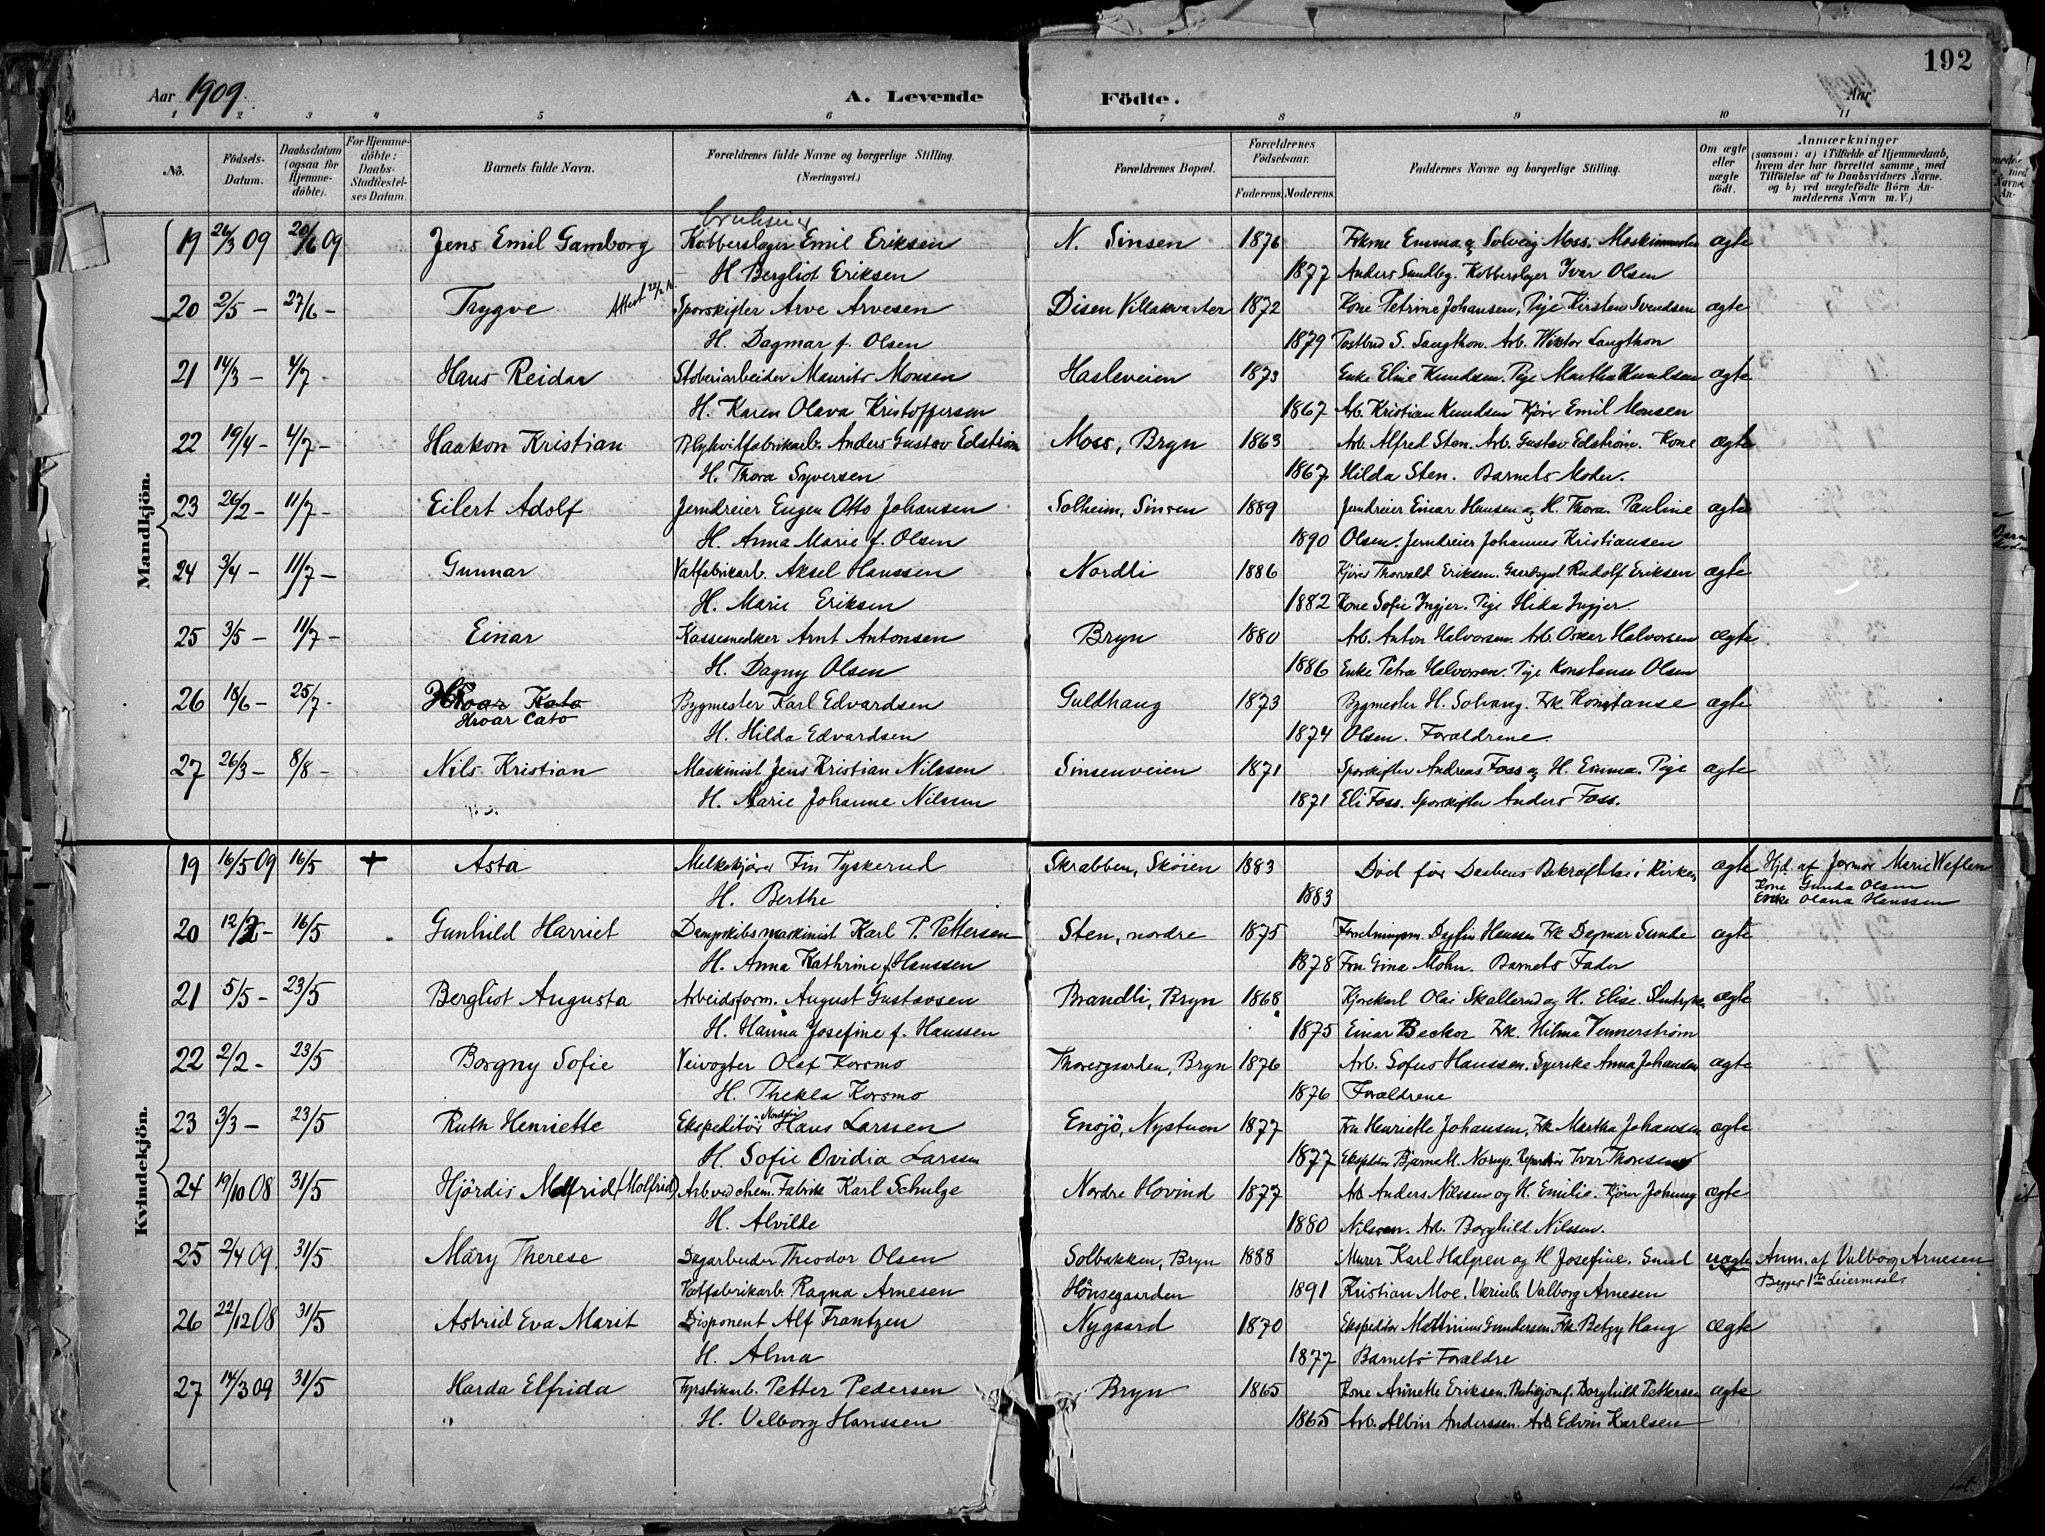 192
Aar 1909. A. Levende Födte. Aar
1 2 3 4 5 6 7 8 9 10 11
No. Födsels-Datum. Daabsdatum (ogsaa for Hjemme-döbte). For Hjemme-döbte: Daabs-Stadfæstel-ses Datum. Barnets fulde Navn. Forældrenes fulde Navne og borgerlige Stilling. (Næringsvei.) Forældrenes Bopæl. Forældrenes Födselsaar. Faderens. Moderens. Faddernes Navne og borgerlige Stilling. Om ægte eller uægte födt. Anmærkninger (saasom: a) i Tilfælde af Hjemmedaab, hvem der har forrettet samme, med Tilföielse af to Daabsvidners Navne, og b) ved uægtefödte Börn Anmelderens Navn m. V.)
Mandkjön.
19 26/3 09 20/6 09 Jens Emil Gamborg Kobberslager Emil Eriksen N. Sinsen 1876 Frkne Emma og Solveig Moss. ægte
H. Bergliot Eriksen 1877 Anders Sundbg. Kobberslager Ivar Olsen
20 2/5 – 27/6 – Trygve Attest Sporskifter Arve Arvesen Disen Villakvarter 1872 Kone Petrine Johansen, Pige Kirsten Svendsen ægte
H. Dagmar f. Olsen 1879 Postbud S. Langthon. Arb. Wiktor Langthon
21 14/3 – 4/7 – Hans Reidar Støberiarbeider Maurits Monsen Hasleveien 1873 Enke Eline Knudsen. Pige Martha Knudsen ægte
H. Karen Olava Kristoffersen 1867 Arb. Kristian Knudsen Kjører Emil Monsen
22 19/4 – 4/7 – Haakon Kristian Blyhvitfabrikarb. Anders Gustav Edström Moss, Bryn 1863 Arb. Alfred Sten. Arb. Gustav Edstrøm. Kone ægte
H. Thora Syversen 1867 Hilda Sten. Barnets Moder.
23 26/2 – 11/7 – Eilert Adolf Jerndreier Eugen Otto Johansen Solheim, Sinsen 1889 Jerndreier Einar Hansen og H. Thora. Pauline ægte
H. Anna Marie f. Olsen 1890 Olsen. Jerndreier Johannes Kristiansen
24 3/4 – 11/7 – Gunnar Vatfabrikarb. Aksel Hanssen Nordli 1886 Kjører Thorvald Eriksen. Gaardsgut Rudolf Eriksen ægte
H. Marie Eriksen 1882 Kone Sofie Ingjer. Pige Hilda Ingjer.
25 3/5 – 11/7 – Einar Kassesnedker Arnt Antonsen Bryn 1880 Arb. Anton Halvorsen. Arb. Oscar Halvorsen ægte
H. Dagny Olsen 1886 Enke Petra Halvorsen. Pige Konstanse Olsen
26 18/6 – 25/7 – Hroar Kato Bygmester Karl Edvardsen Guldhaug 1873 Bygmester H. Solvang. Frk. Konstanse ægte
Hroar Cato H. Hilda Edvardsen 1874 Olsen. Forældrene.
27 26/3 – 8/8 – Nils Kristian Maskinist Jens Kristian Nilssen Sinsenveien 1871 Sporskifter Andreas Foss og H. Emma. Pige ægte
H. Marie Johanne Nilssen 1871 Eli Foss. Sporskifter Anders Foss.
Kvindekjön.
19 16/5 09 16/5 + Asta Melkekjører Fin Tyskerud Skrabben, Skøien 1883 Død før Daabens Bekræftelse i Kirken ægte Hjd. af Jormor Marie Weflen
H. Berthe 1883 Kone Gunda Olsen
Enke Olana Hanssen
20 12/2 – 16/5 Gunhild Harriet Dampskibsmaskinist Karl P. Pettersen Sten, nordre 1875 Forretningsm. Dyfin Hanssen Frk Dagmar Sunde ægte
H. Anna Kathrine f. Hanssen 1878 Fru Gina Mohn. Barnets Fader
21 5/5 – 23/5 Bergliot Augusta Arbeidsform. August Gustavsen Brandli, Bryn 1868 Kjørekarl Olai Skallerud og H. Elise. ægte
H. Hanna Josefine f. Hanssen 1875 Einar Becker Frk. Hilma Vennerstrøm
22 2/2 – 23/5 Borgny Sofie Veivogter Olaf Korsmo Thoresgaarden, Bryn 1876 Arb. Sofus Hanssen. Syerske Anna Johansen ægte
H. Thekla Korsmo 1876 Forældrene
23 3/3 – 23/5 Ruth Henriette Ekspeditør Hans Larssen Ensjö, Nystuen 1877 Fru Henriette Johansen, Frk Martha Johansen ægte
H. Sofie Ovidia Larssen 1877 Ekspeditør Bjarne M. Norup. Ivar Thoresen
24 19/10 08 31/5 Hjördis Molfrid (Molfrid) Arb. ved chem. Fabrik Karl Schulze Nordre Hovind 1877 Arb. Anders Nilssen og H. Emilie. Kjører Johnny ægte
H. Alvilde 1880 Nilssen. Arb. Borghild Nilssen.
25 2/4 09 31/5 Mary Therese Dagarbeider Theodor Olsen Solbakken, Bryn 1888 Murer Karl Halgren og H Josefine. Smed uægte Anm. af Valborg Arnesen
Vatfabrikarb. Ragna Arnesen Hönsegaarden 1891 Kristian Moe. Valborg Arnesen Begges 1ste Leiermaal
26 22/12 08 31/5 Astrid Eva Marit Disponent Alf Frantzen Nygaard 1870 Ekspeditør Mathinius Gundersen. Frk. Betzy Haug ægte
H. Alma 1877 Barnets Forældre
27 14/3 09 31/5 Harda Elfrida Fyrstikarb. Petter Pedersen Bryn 1865 Kone Annette Eriksen. Butikjomf. Borghild Pettersen ægte
H. Valborg Hanssen 1865 Arb. Albin Anderssen. Arb Edvin Karlsen